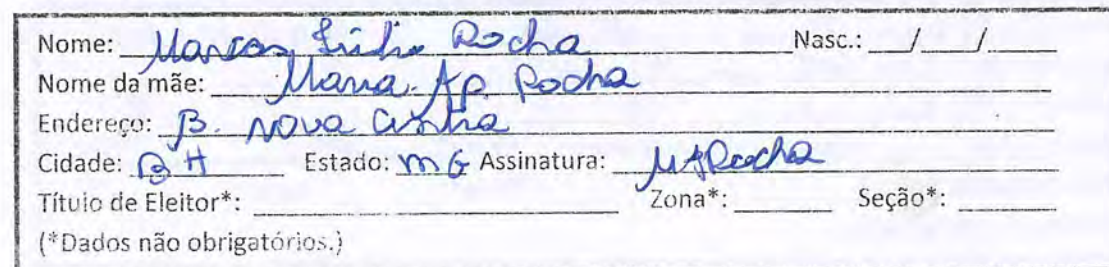 Nome: Marcos Rocha Nasc.: / /
Nome da mãe: Maria Ap. Rocha
Endereço: B. Nova Cintra
Cidade: BH Estado: MG Assinatura: Rocha
Título de Eleitor*: Zona*: Seção*:
(*Dados não obrigatórios.)